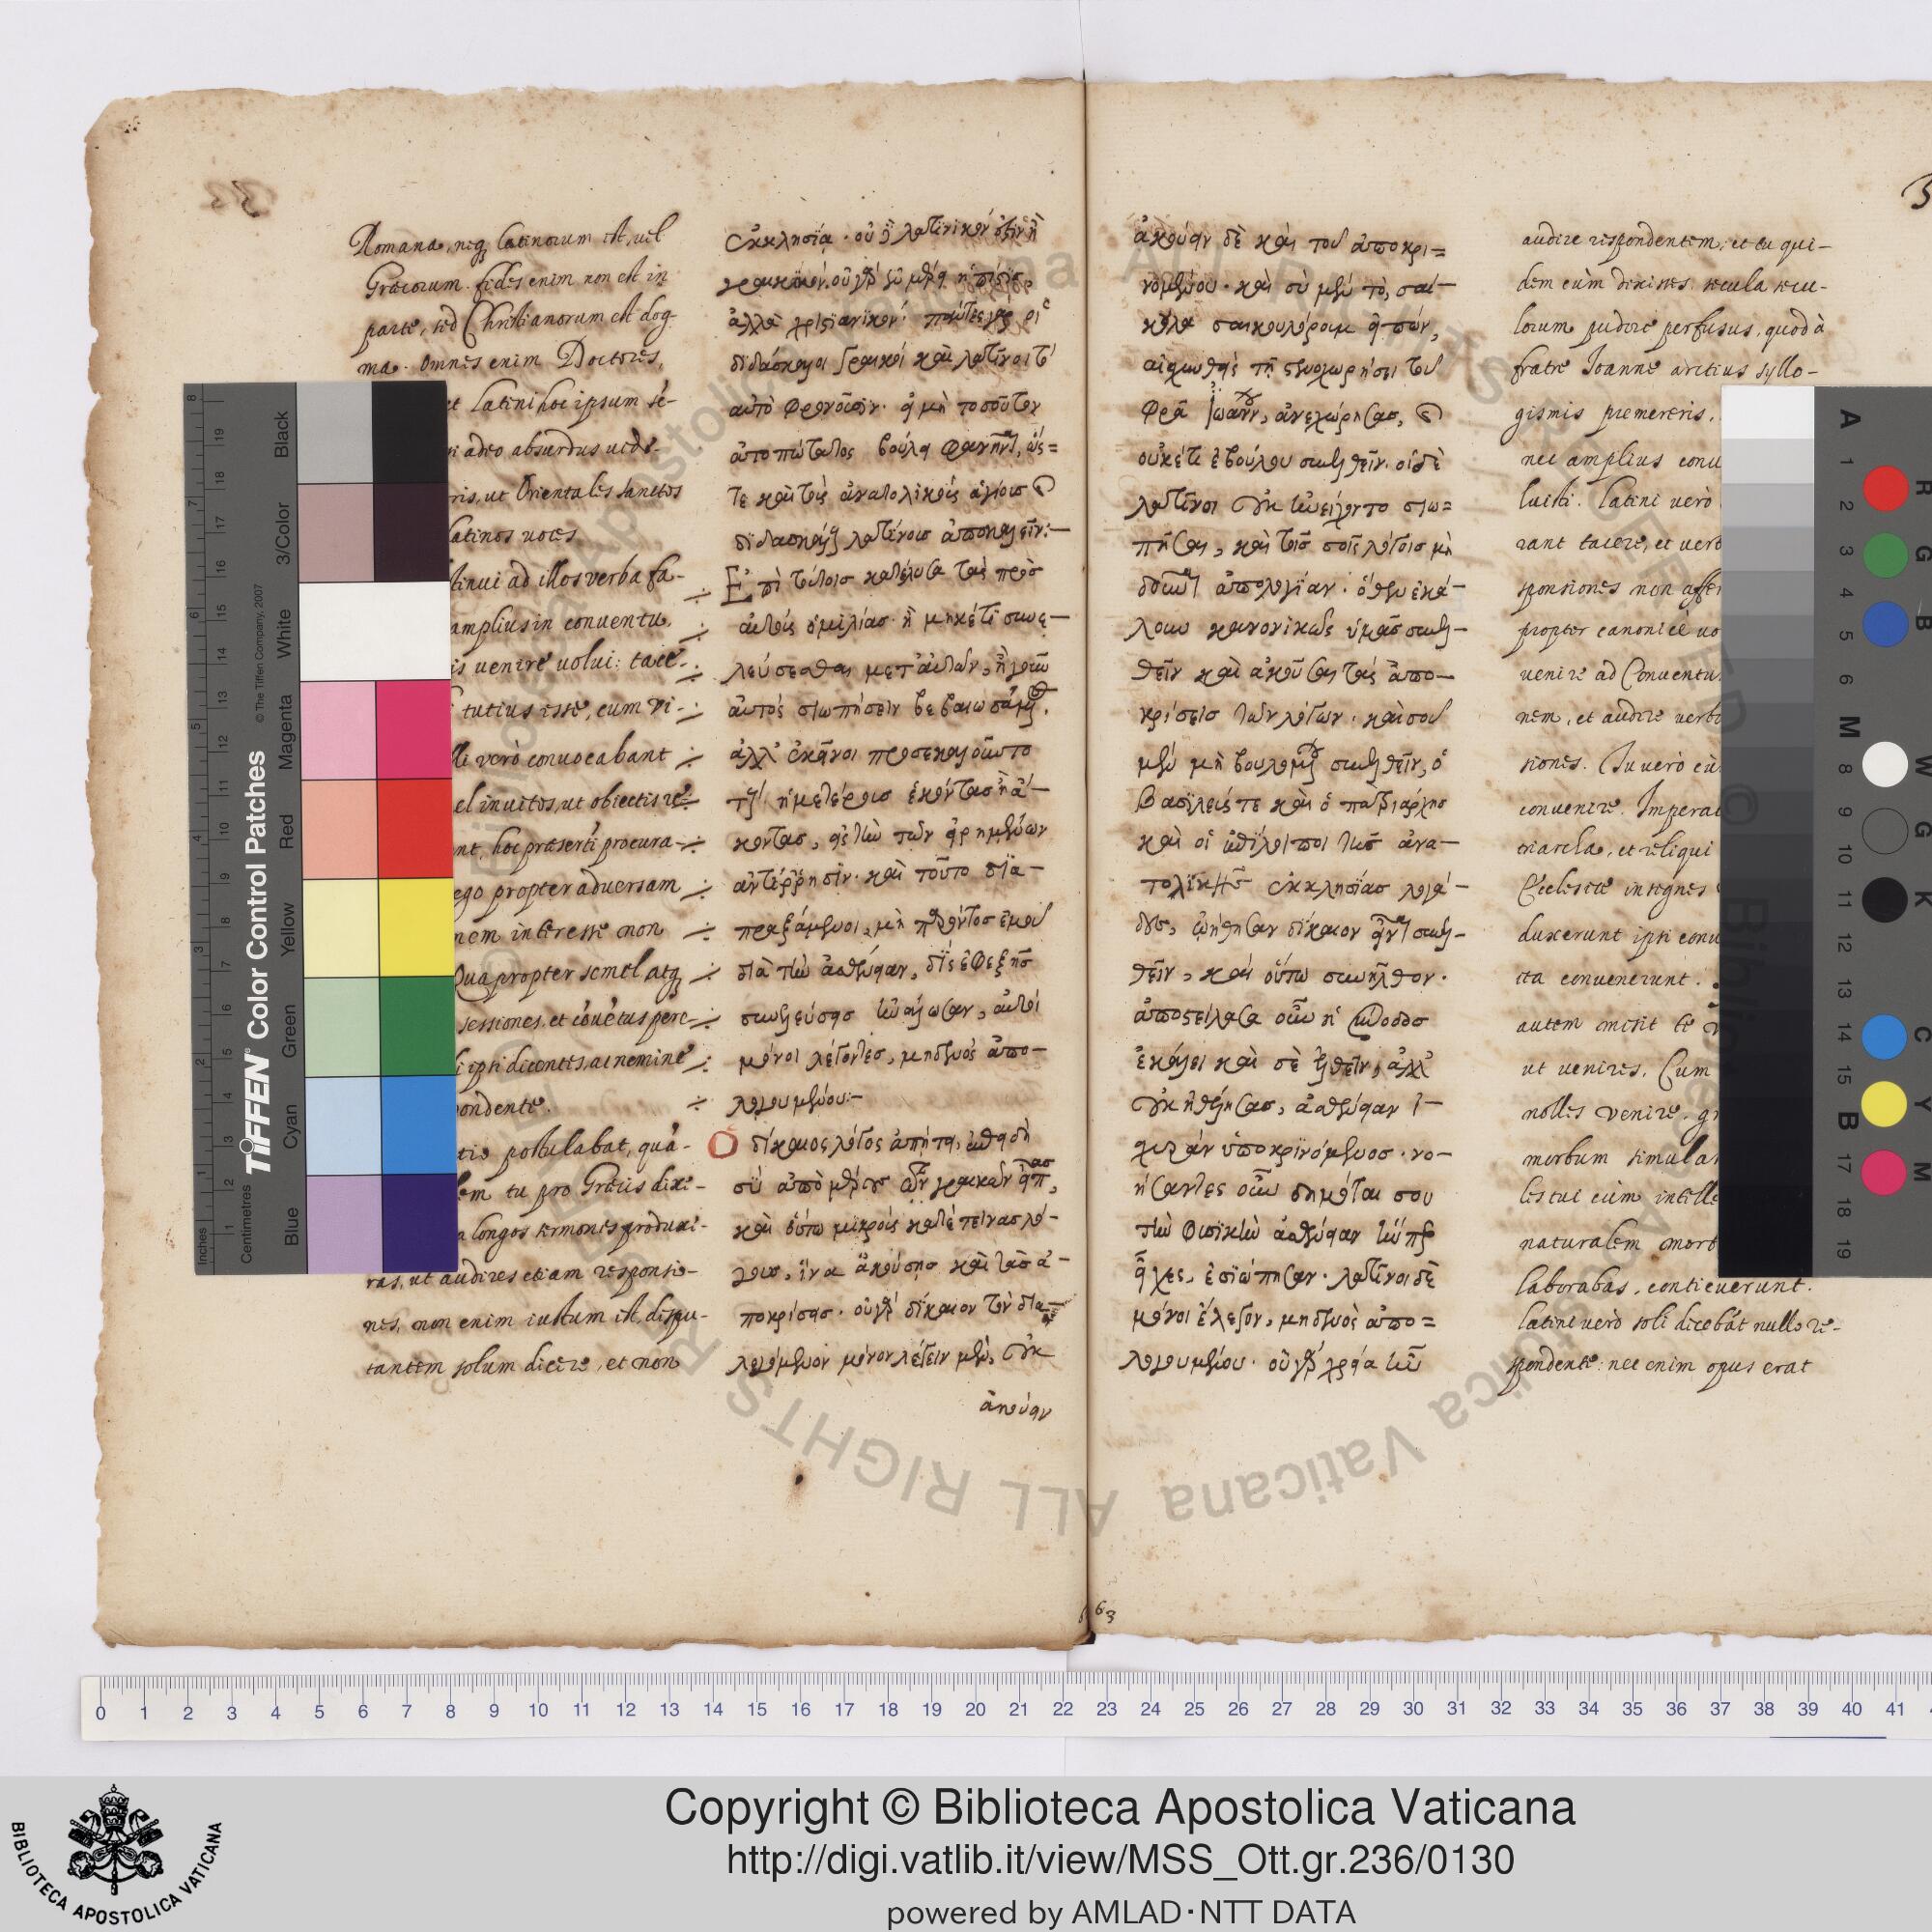 Romana, neq; Latinorum est, vel
Graecorum. fides enim non est in
parte, sed Christianorum est dog
ma. Omnes enim Doctores,
et Latini hoc ipsum se-
adeo absurdus vide-
ris, ut Orientales sanctos
Latinos voces
tinui ad illos verba fa-
amplius in conventu,
is venire volui: tace-
tutius esse, cum
lli verò convocabant
el invitos, ut obiectis re
nt, hoc praeserti procura-
ego propter adversam
nem interesse non
Quapropter semel atq;
sessiones, et covetus
ipsi dicentes, ac nemine
pondente.
tio postulabat, qua-
em tu pro Graecis dixe-
longos sermones produxi-
ras, ut audires etiam responsio-
nes, non enim iustum est, dispu-
tantem solum dicere, et non
ἐκκλησία. οὐ λατινικόν ἐστιν ἢ
γραικικόν. οὐ γὰρ ἐν μέρει ἡ πίστις
ἀλλὰ χριστιανικόν. πάντες γὰρ οἱ
διδάσκαλοι γραικοὶ καὶ λατῖνοι τ'
αὐτὸ φρονοῦσιν. εἰ μὴ τοσοῦτον
ἀτοπώτατος βούλει φανῆναι, ὡς=
τε καὶ τοὺς ἀνατολικοὺς ἁγίους καὶ
διδασκάλους λατίνους ἀποκαλεῖν:—
Ἐπὶ τούτοις κατέλυσα τὰς πρὸς
αὐτοὺς ὁμιλίας. ἢ μηκέτι συνε—
λεύσεσθαι μετ' αὐτῶν, ἢ γοῦν
αὐτὸς σιωπήσειν βεβαιωσάμενος.
ἀλλ' ἐκεῖνοι προσεκαλοῦντο
τῶν ἡμετέρων ἑκόντας ἢ ἄ—
κοντας, εἰς τὴν τῶν εἰρημένων
ἀντίῤῥησιν. καὶ τοῦτο δια—
πραξάμενοι, μὴ παρόντος ἐμοῦ
διὰ τὴν ἀσθένειαν, δὶς ἐφεξῆς
συνελεύσεις ἠνάγκασαν, αὐτοὶ
μόνοι λέγοντες, μηδενὸς ἀπο—
λογουμένου:—
Ὁ δίκαιος λόγος ἀπῄτει, ἐπειδὴ
σὺ ἀπὸ μέρους τῶν γραικῶν εἶπας,
καὶ οὕτω μακροὺς κατέτεινας λό—
γους, ἵνα ἀκούσῃς καὶ τὰς ἀ—
ποκρίσεις. οὐ γὰρ δίκαιον τὸν δια—
λεγόμενον μόνον λέγειν μὲν, οὐκ
ἀκούειν
ἀκούειν δὲ καὶ τοῦ ἀποκρι=
νομένου. καὶ σὺ μὲν τὸ, σαί—
κουλα σαικουλόρουμ εἰπών,
αἰσχυνθεὶς τῇ στενοχωρήσει τοῦ
φρᾶ Ἰωάννου, ἀνεχώρησας, καὶ
οὐκέτι ἐβούλου συνελθεῖν. οἱ δὲ
λατῖνοι οὐκ ἠνείχοντο σιω=
πῆσαι, καὶ τοῖς σοῖς λόγοις μὴ
δοῦναι ἀπολογίαν. ὅθεν ἐκά—
λουν κανονικῶς ὑμᾶς συνελ—
θεῖν καὶ ἀκοῦσαι τὰς ἀπο—
κρίσεις τῶν λόγων. καὶ σοῦ
μὲν μὴ βουλομένου συνελθεῖν, ὁ
βασιλεύς τε καὶ ὁ πατριάρχης
καὶ οἱ ἐπίλοιποι τῆς ἀνα—
τολικῆς ἐκκλησίας λογά—
δες, ᾠήθησαν δίκαιον εἶναι συνελ—
θεῖν, καὶ οὕτω συνῆλθον.
ἀποστείλασα οὖν ἡ σύνοδος
ἐκάλει καὶ σὲ ἐλθεῖν, ἀλλ'
οὐκ ἠθέλησας, ἀσθένειαν ἰ—
σχυρὰν ὑποκρινόμενος. νο—
ήσαντες οὖν δημόται σου
τὴν φυσικὴν ἀσθένειαν ἥνπερ
εἶχες, ἐσιώπησαν. λατῖνοι δὲ
μόνοι ἔλεγον, μηδενὸς ἀπο=
λογουμένου. οὐ γὰρ χρεία ἦν
audire respondentem, et tu qui-
dem cùm dixisses, secula secu-
lorum pudore perfusus, quod à
fratre Joanne arctius syllo-
gismis premereris,
nec amplius conv
luisti. Latini verò
rant tacere, et verb
sponsiones non affer
propter canonicè vo
venire ad Conventu
nem, et audire verbo
siones. Tu verò cù
convenire. Imperat
triarcha, et reliqui
Ecclesiae insignes
duxerunt ipsi conv
ita convenerunt.
autem misit te
ut venires. Cum
nolles venire, gr
morbum simula
les tui cùm intelle
naturalem morb
laborabas, conticuerunt.
Latini verò soli dicebat nullo re-
spondente: nec enim opus erat
63
TIFFEN Color Control Patches
© The Tiffen Company, 2007
Inches
Centimetres
Blue
Cyan
Green
Yellow
Red
Magenta
White
3/Color
Black
A 1 2 3 4 5 6 M 8 9 10 11 12 13 14 15 B 17 18 19
R G B W G K C Y M
0 1 2 3 4 5 6 7 8 9 10 11 12 13 14 15 16 17 18 19 20 21 22 23 24 25 26 27 28 29 30 31 32 33 34 35 36 37 38 39 40 41
BIBLIOTECA APOSTOLICA VATICANA
Copyright © Biblioteca Apostolica Vaticana
http://digi.vatlib.it/view/MSS_Ott.gr.236/0130
powered by AMLAD·NTT DATA